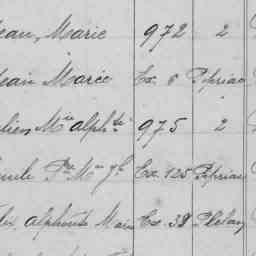 ean, Marie 972 2
ean Marie Ex. 6 Pipriac
ulien Mie alphse 975 2
mile Pre Mie Jh Ex. 125 Pipriac
lix alphonse Marie Ex. 38 Plélan